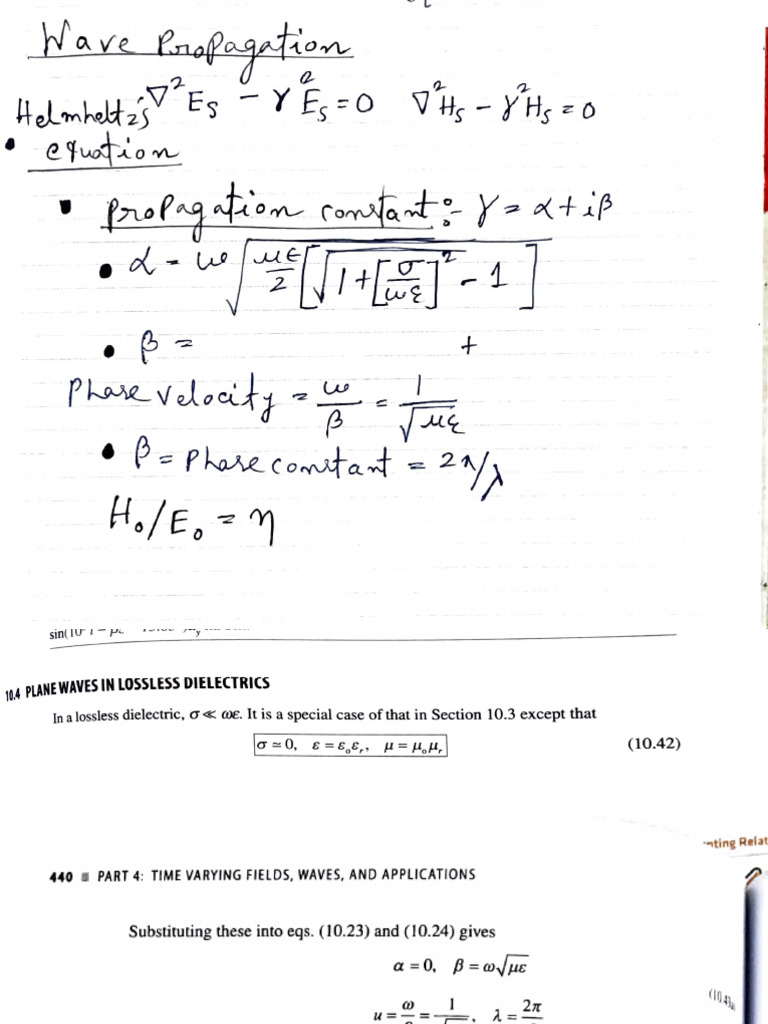 Wave Propagation
Helmheltz's ∇²Es − γ²Es = 0   ∇²Hs − γ²Hs = 0
• equation
▪ propagation constant :- γ = α + iβ
• α = ω √(με/2 [√(1 + [σ/ωε]²) − 1])
• β =                +
Phase velocity = ω/β = 1/√με
• β = Phase constant = 2π/λ
H₀/E₀ = η
sin(10
10.4 PLANE WAVES IN LOSSLESS DIELECTRICS
In a lossless dielectric, σ ≪ ωε. It is a special case of that in Section 10.3 except that
σ ≃ 0,   ε = ε₀εᵣ,   μ = μ₀μᵣ   (10.42)
nting Relat
440 ■ PART 4: TIME VARYING FIELDS, WAVES, AND APPLICATIONS
Substituting these into eqs. (10.23) and (10.24) gives
α = 0,   β = ω√με
(10.43a
u = ω/β = 1/√με,   λ = 2π/β